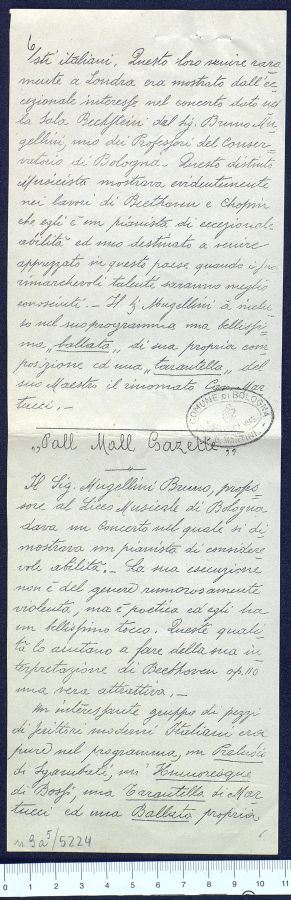 6
sti italiani. Questo loro venire rara
mente a Londra era mostrato dall'ec-
cezionale interesse nel concerto dato nel
la Sala Bechstein dal Sig. Bruno Mu-
gellini, uno dei Professori del Conser-
vatorio di Bologna. Questo distinto
Musicista mostrava evidentemente
nei lavori di Beethoven e Chopin
che egli è un pianista di eccezionale
abilità ed uno destinato a venire
apprezzato in questo paese quando i suoi
rimarchevoli talenti saranno meglio
conosciuti. - Il Sig. Mugellini à inclu-
so nel suo programma una bellissi-
ma „ballata„ di sua propria com
posizione ed una „tarantella„ del
suo Maestro il rinomato Cav. Mar-
tucci. -
COMUNE DI BOLOGNA
MARTINI
„Pall Mall Gazette„
Il Sig. Mugellini Bruno, profes-
sore al Liceo Musicale di Bologna
dava un Concerto nel quale si di-
mostrava un pianista di considere
vole abilità. - La sua esecuzione
non è del genere rumorosamente
violenta, ma è poetica ed egli ha
un bellissimo tocco. Queste quali-
tà lo aiutano a fare della sua in-
terpretazione di Beethoven op. 110
una vera attrattiva. -
Un interessante gruppo di pezzi
di scrittori moderni Italiani era
pure nel programma, un Preludio
di Sgambati, un' Humoresque
di Bossi, una Tarantella di Mar-
tucci ed una Ballata propria
n 9 a 5/5224
0 1 2 3 4 5 6 7 8 9 10 11